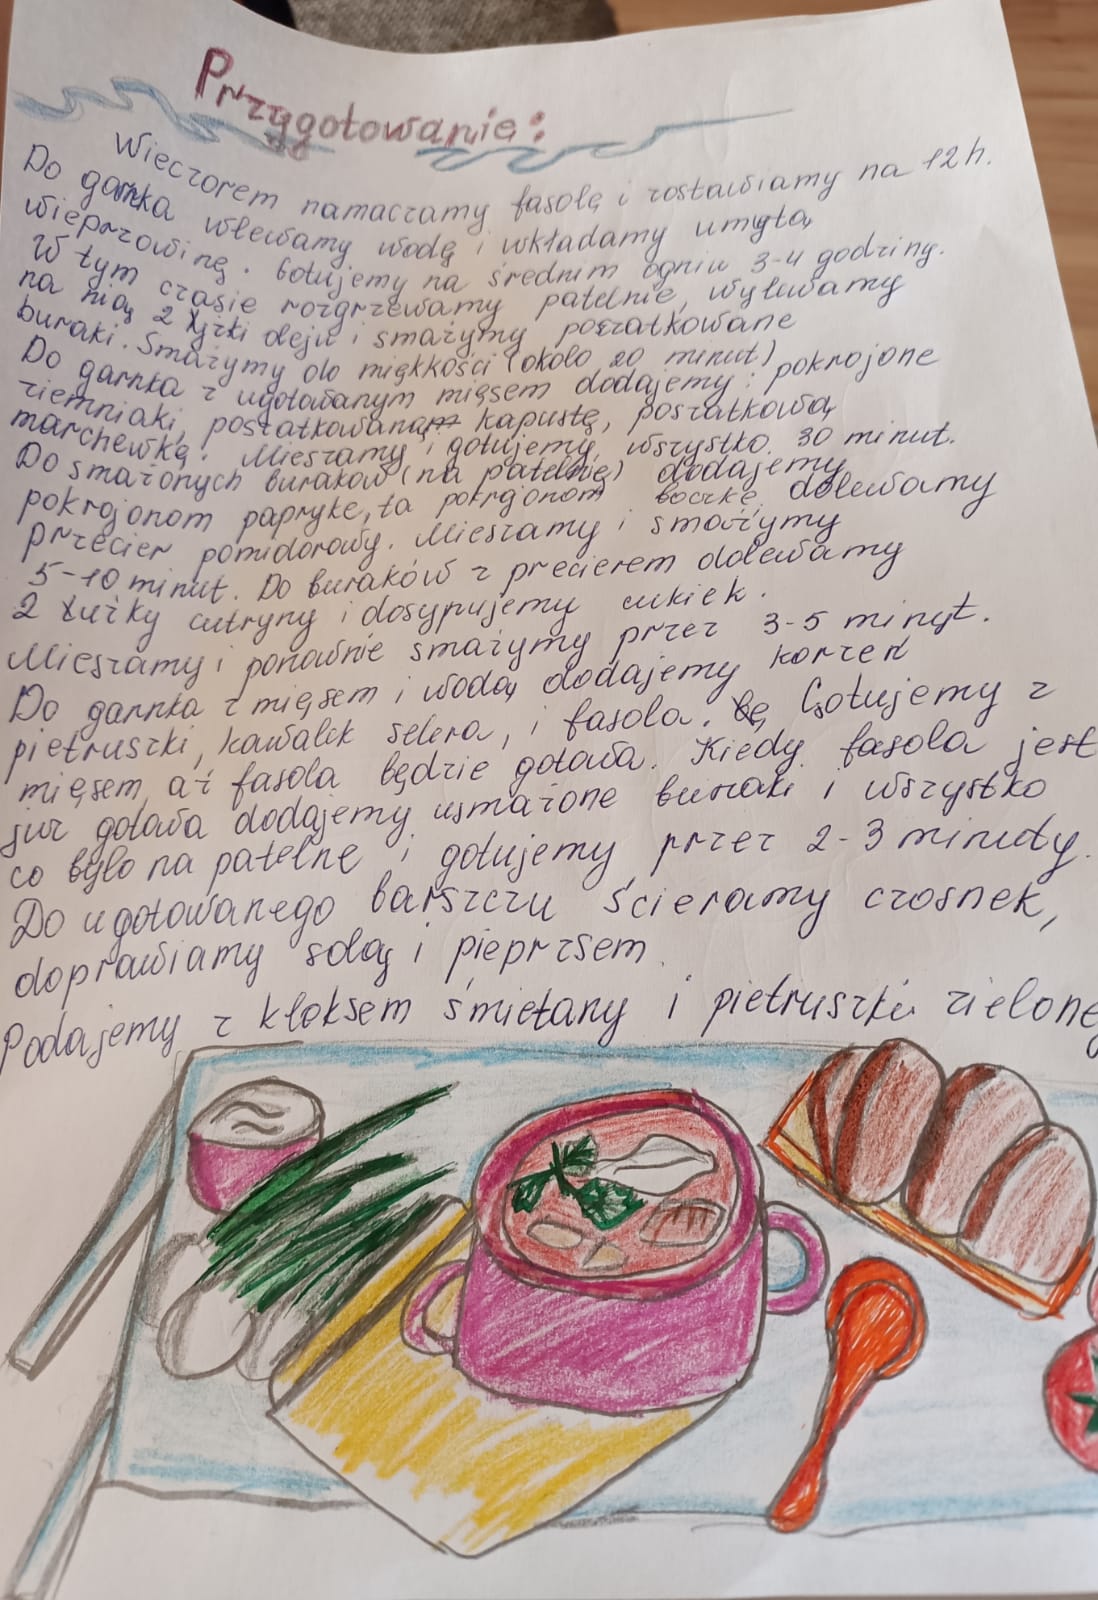 Przygotowanie:
Wieczorem namaczamy fasolę i zostawiamy na 12 h.
Do garnka wlewamy wodę i wkładamy umytą
wieprzowinę. Gotujemy na średnim ogniu 3-4 godziny.
W tym czasie rozgrzewamy patelnie, wylewamy
na nią 2 łyżki oleju i smażymy poszatkowane
buraki. Smażymy do miękkości (około 20 minut)
Do garnka z ugotowanym mięsem dodajemy: pokrojone
ziemniaki, poszatkowaną kapustę, poszatkową
marchewkę. Mieszamy i gotujemy wszystko 30 minut.
Do smażonych buraków (na patelnię) dodajemy
pokrojonom papryke, ta pokrojonom boczkę, dolewamy
przecier pomidorowy. Mieszamy i smażymy
5-10 minut. Do buraków z precierem dolewamy
2 łużky cutryny i dosypujemy cukiek.
Mieszamy i ponownie smażymy przez 3-5 minyt.
Do garnka z mięsem i wodą dodajemy korzeń
pietruszki, kawałek selera, i fasola. Gotujemy z
mięsem aż fasola będzie gotowa. Kiedy fasola jest
już gotowa dodajemy usmażone buraki i wszystko
co było na patelnę i gotujemy przez 2-3 minuty.
Do ugotowanego barszczu ścieramy czosnek,
doprawiamy solą i pieprzsem.
Podajemy z kłoksem śmietany i pietruszki zielone